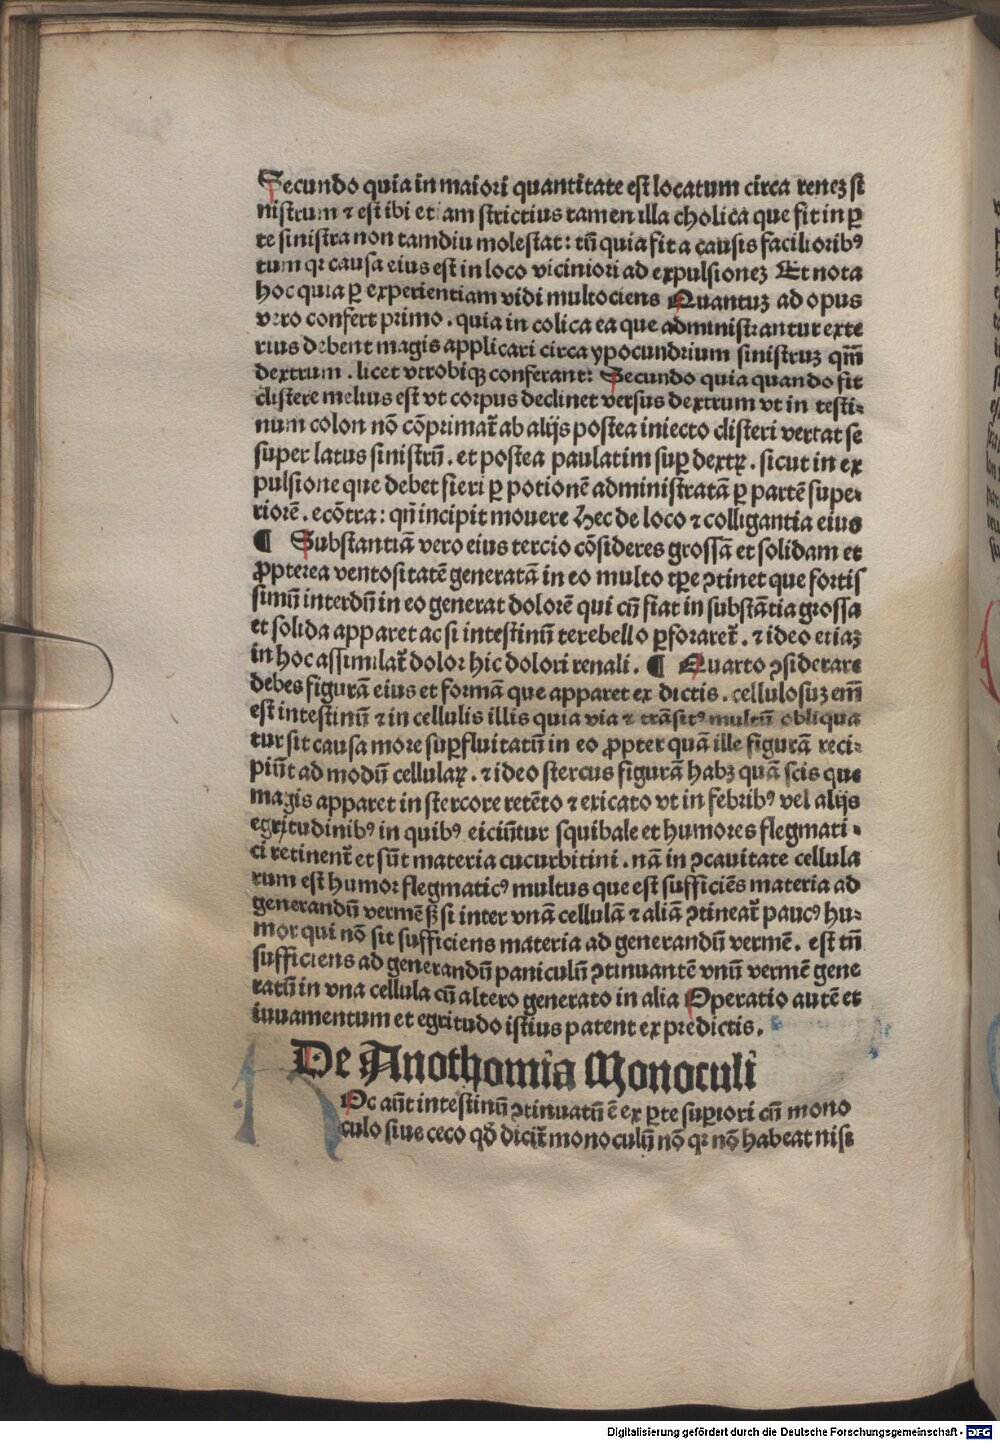 Secundo quia in maiori quantitate est locatum circa renez si
nistrum ⁊ est ibi etiam strictius tamen illa cholica que fit in ꝑ
te sinistra non tamdiu molestat: tñ quia fit a causis faciliorib⁹
tum qꝛ causa eius est in loco viciniori ad expulsionez Et nota
hoc quia ꝑ experientiam vidi multociens Quantuz ad opus
vero confert primo . quia in colica ea que administrantur exte
rius debent magis applicari circa ypocundrium sinistruz qm̃
dextrum . licet vtrobiqꝫ conferant: Secundo quia quando fit
clistere melius est vt corpus declinet versus dextrum vt in testi⸗
num colon nõ cõprimat̃ ab alijs postea iniecto clisteri vertat se
super latus sinistrũ . et postea paulatim suꝑ dextꝝ . sicut in ex
pulsione que debet fieri ꝑ potionẽ administratã ꝑ partẽ supe⸗
riorẽ . ecõtra : qñ incipit mouere Hec de loco ⁊ colligantia eius
¶ Substantiã vero eius tercio cõsideres grossã et solidam et
ꝓpterea ventositatẽ generatã in eo multo tꝑe ꝯtinet que fortis
simũ interdũ in eo generat dolorẽ qui cũ fiat in substãtia grossa
et solida apparet ac si intestinũ terebello ꝑforaret̃ . ⁊ ideo etiaz
in hoc assimilat̃ dolor hic dolori renali . ¶ Quarto ꝯsiderare
debes figurã eius et formã que apparet ex dictis . cellulosuz em̃
est intestinũ ⁊ in cellulis illis quia via ⁊ trãsit⁹ multũ obliqua
tur sit causa more suꝑfluitatũ in eo ꝓpter quã ille figurã reci⸗
piũt ad modũ cellulaꝝ . ⁊ ideo stercus figurã habꝫ quã scis que
magis apparet in stercore retẽto ⁊ exicato vt in febrib⁹ vel alijs
egritudinib⁹ in quib⁹ eiciũtur squibale et humores flegmati⸗
ci retinent̃ et sũt materia cucurbitini . nã in ꝯcauitate cellula
rum est humor flegmatic⁹ multus que est sufficiẽs materia ad
generandũ vermẽ ß si inter vnã cellulã ⁊ aliã ꝯtineat̃ pauc⁹ hu⸗
mor qui nõ sit sufficiens materia ad generandũ vermẽ . est tñ
sufficiens ad generandũ paniculũ ꝯtinuantẽ vnũ vermẽ gene
ratũ in vna cellula cũ altero generato in alia Operatio autẽ et
iuuamentum et egritudo istius patent ex predictis .
De Anothomia Monoculi
HOc aũt intestinũ ꝯtinuatũ ẽ ex ꝑte suꝑiori cũ mono
culo siue ceco qđ dicit̃ monoculũ nõ qꝛ nõ habeat nisi
Digitalisierung gefördert durch die Deutsche Forschungsgemeinschaft - DFG